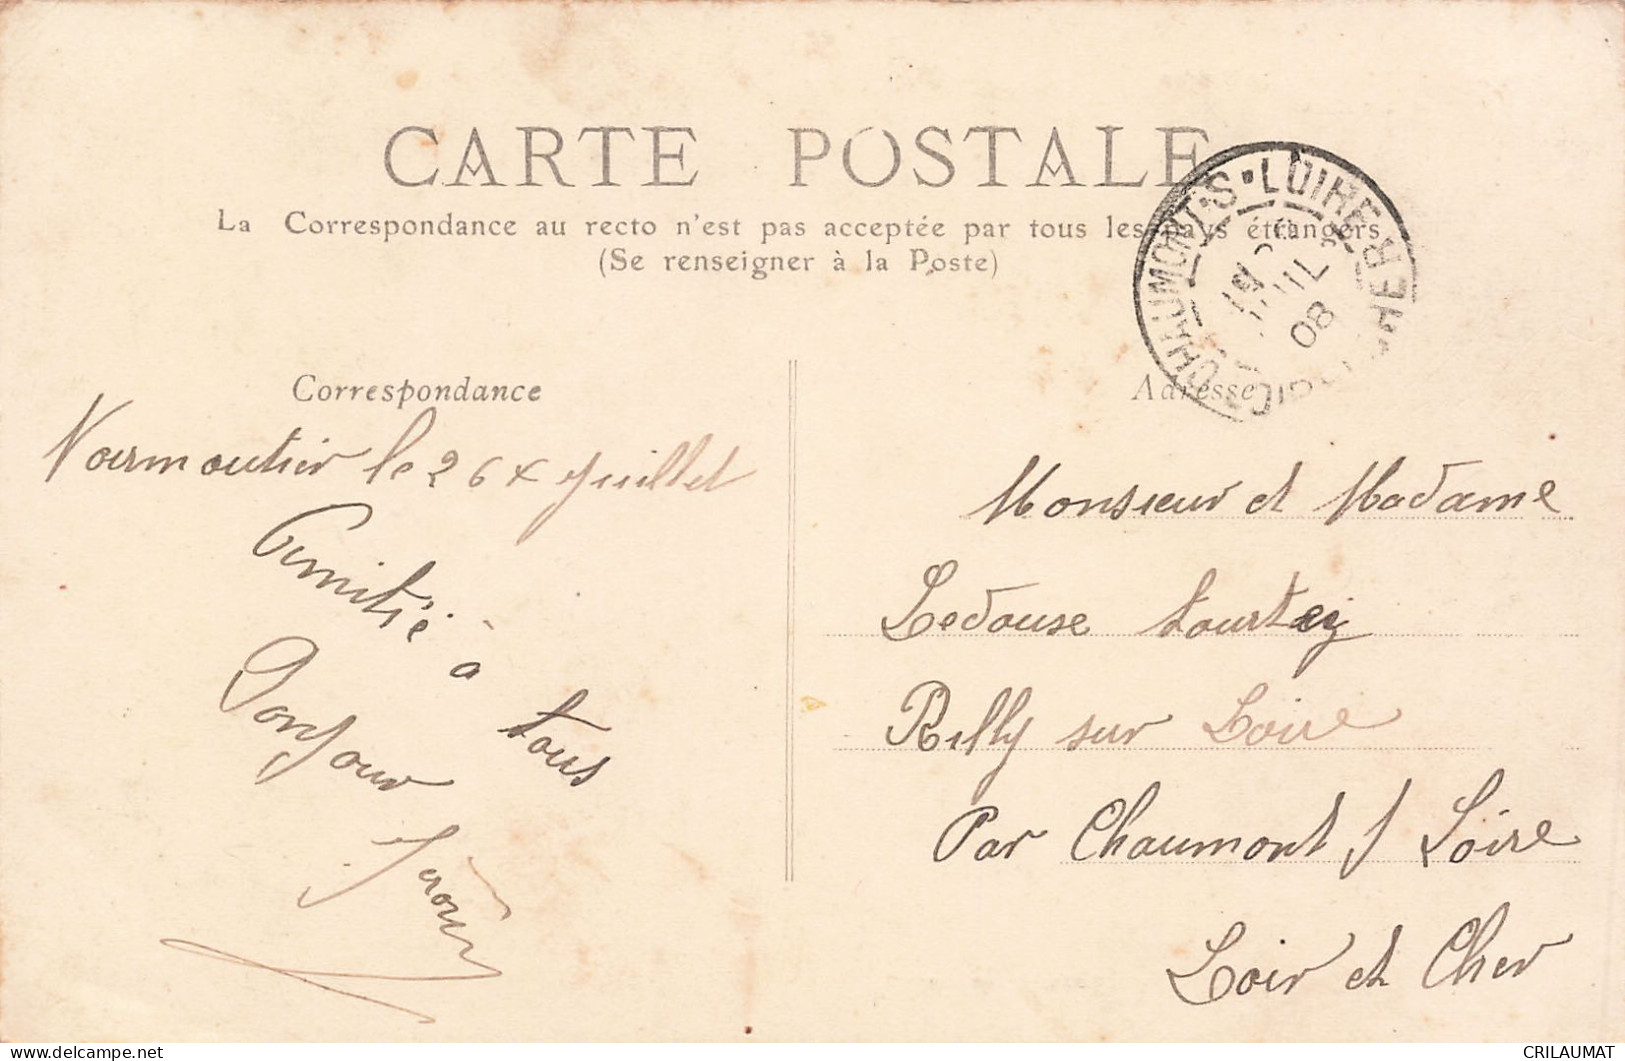 CARTE POSTALE
La Correspondance au recto n'est pas acceptée par tous les pays étrangers
(Se renseigner à la Poste)
CHAUMONT-S-LOIRE
CHER
JUIL
08
Correspondance
Noirmoutier le 26 x Juillet
Amitié à tous
Bonjour
Adresse
Monsieur et Madame
Ledouse
Rilly sur Loire
Par Chaumont s/ Loire
Loir et Cher
CRILAUMAT